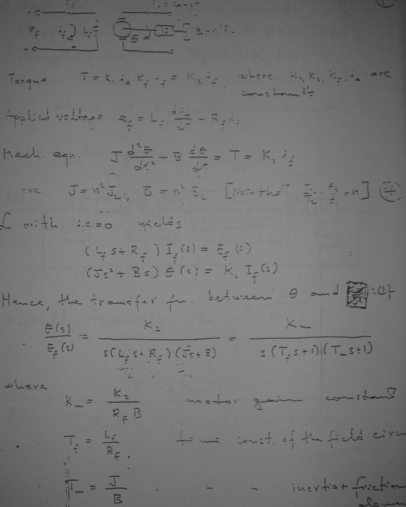 e_f i_f L_f
Torque T = K₁ i_a K_f i_f = K₂ i_f where K₁, K₂, K_f, i_a are
constants
Applied voltage e_f = L_f di_f/dt - R_f i_f
Mech. eqn. J d²θ/dt² - B dθ/dt = T = K₂ i_f
J = n² J_L, B = n² B_L
L with i.c.=0 yields
(L_f s + R_f) I_f(s) = E_f(s)
(Js² + Bs) Θ(s) = K₂ I_f(s)
Hence, the transfer fn. between θ and
Θ(s)/E_f(s) = K₂/(s(L_f s + R_f)(Js + B)) = K_m/(s(T_f s + 1)(T_m s + 1))
where
K_m = K₂/(R_f B) motor gain constant
T_f = L_f/R_f time const. of the field circ
T_m = J/B - - inertia + friction